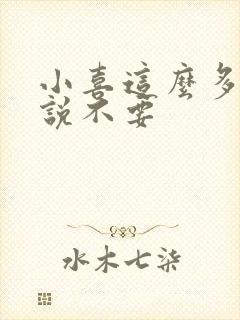 小喜這麼多
說不要
水木七柒